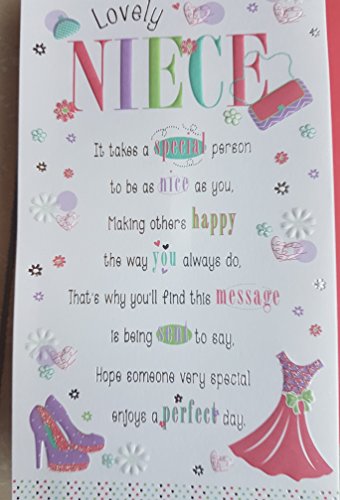 Lovely
NIECE
It takes a special person
to be as nice as you,
Making others happy
the way you always do,
That's why you'll find this message
is being sent to say,
Hope someone very special
enjoys a perfect day.